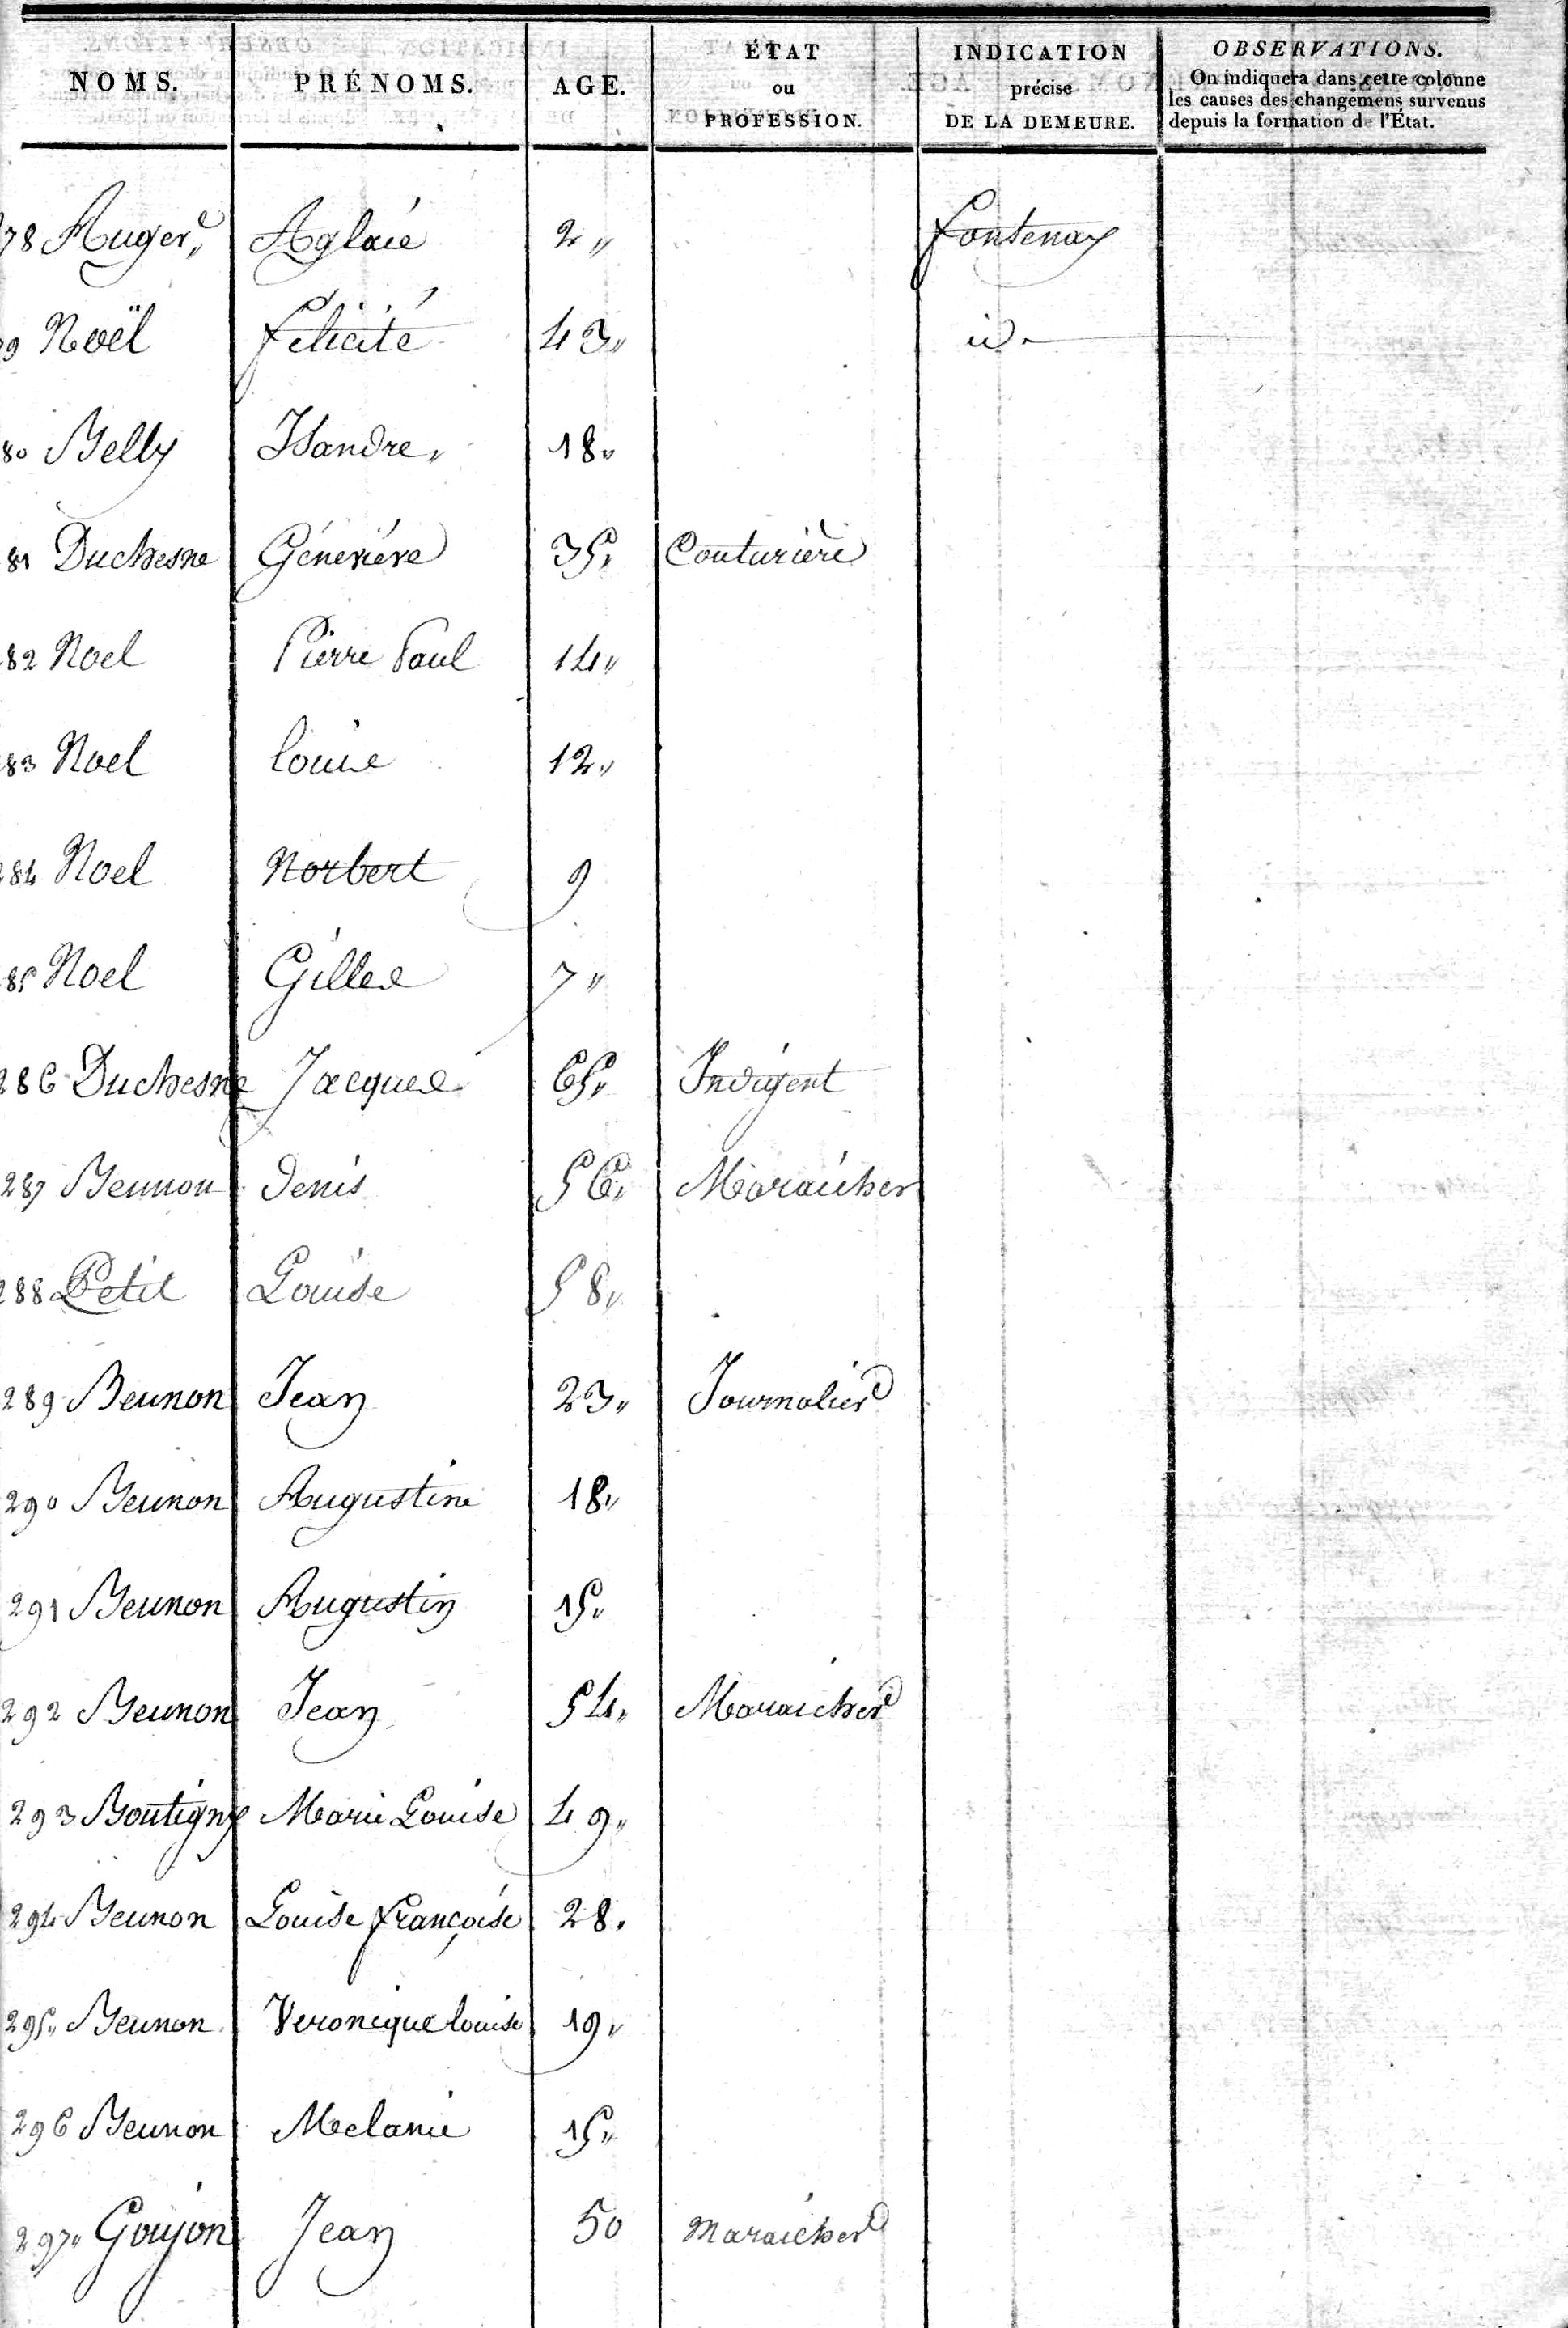 NOMS. PRÉNOMS. AGE. ÉTAT ou PROFESSION. INDICATION précise DE LA DEMEURE. OBSERVATIONS. On indiquera dans cette colonne les causes des changemens survenus depuis la formation de l'État.
78 Auger, Aglaïé 2 " Fontenay
9 Noël Félicité 43 " id.
80 Belly Isandre, 18 "
81 Duchesne Généviéve 35 " Couturière
82 Noel Pierre Paul 14 "
283 Noel Louise 12 "
284 Noel Norbert 9
285 Noel Gilles 7 "
286 Duchesne Jacques 65 " Indigent
287 Beunon Denis 56 " Maraicher
288 Petit Louise 58 "
289 Beunon Jean 23 " Journalier
290 Beunon Augustine 18 "
291 Beunon Augustin 15 "
292 Beunon Jean 54 " Maraicher
293 Boutigny Marie Louise 49 "
294 Beunon Louise Françoise 28 "
295 " Beunon Veronique Louise 19 "
296 Beunon Melanie 15 "
297 " Goujon Jean 50 Maraicher